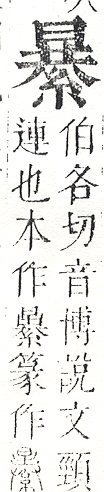 伯各切音博說文頸
連也本作篆作